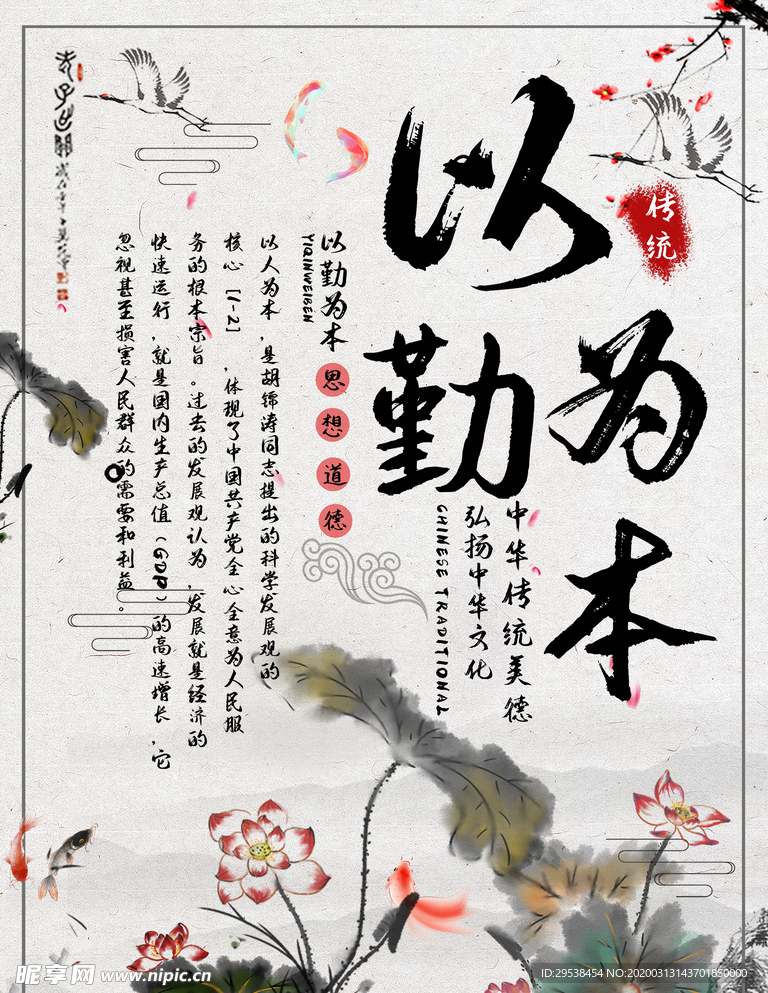 以勤为本
传统
中华传统美德
弘扬中华文化
CHINESE TRADITIONAL
以勤为本
YIQINWEIBEN
思想道德
以人为本，是胡锦涛同志提出的科学发展观的
核心［1-2］，体现了中国共产党全心全意为人民服
务的根本宗旨。过去的发展观认为，发展就是经济的
快速运行，就是国内生产总值（GDP）的高速增长，它
忽视甚至损害人民群众的需要和利益。
昵享网 www.nipic.cn
ID:29538454 NO:20200313143701850000